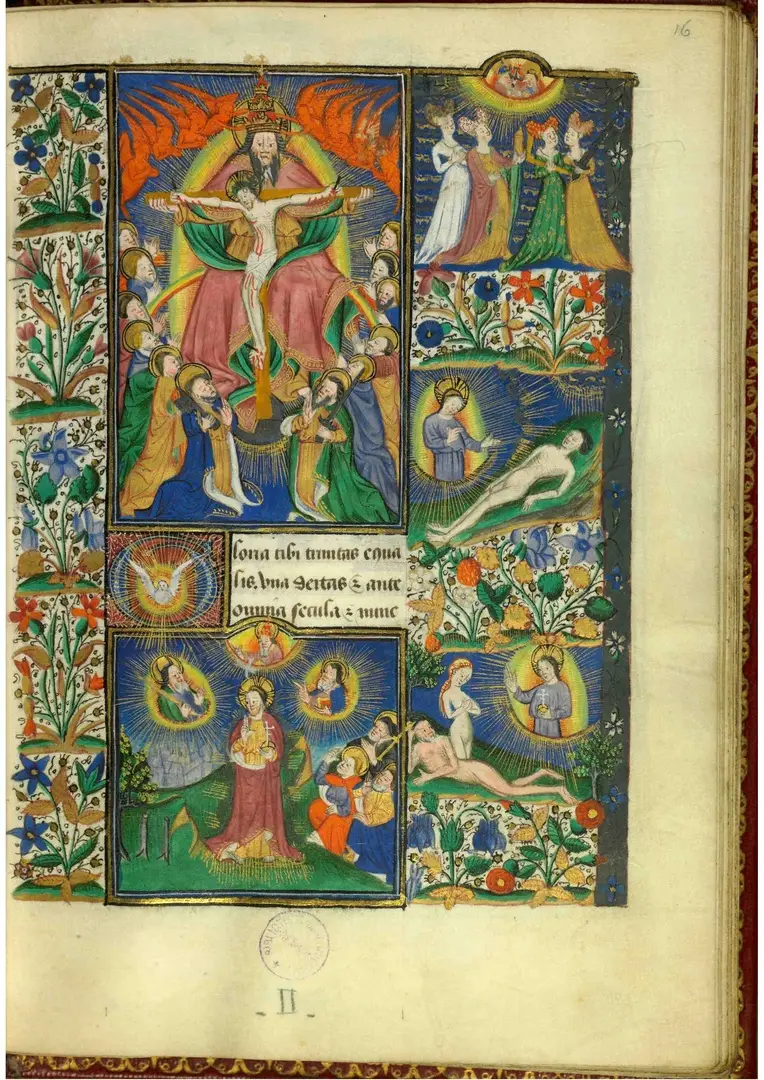 16
Gloria tibi trinitas equa
lis, vna deitas & ante
omnia secula & nunc
- II -